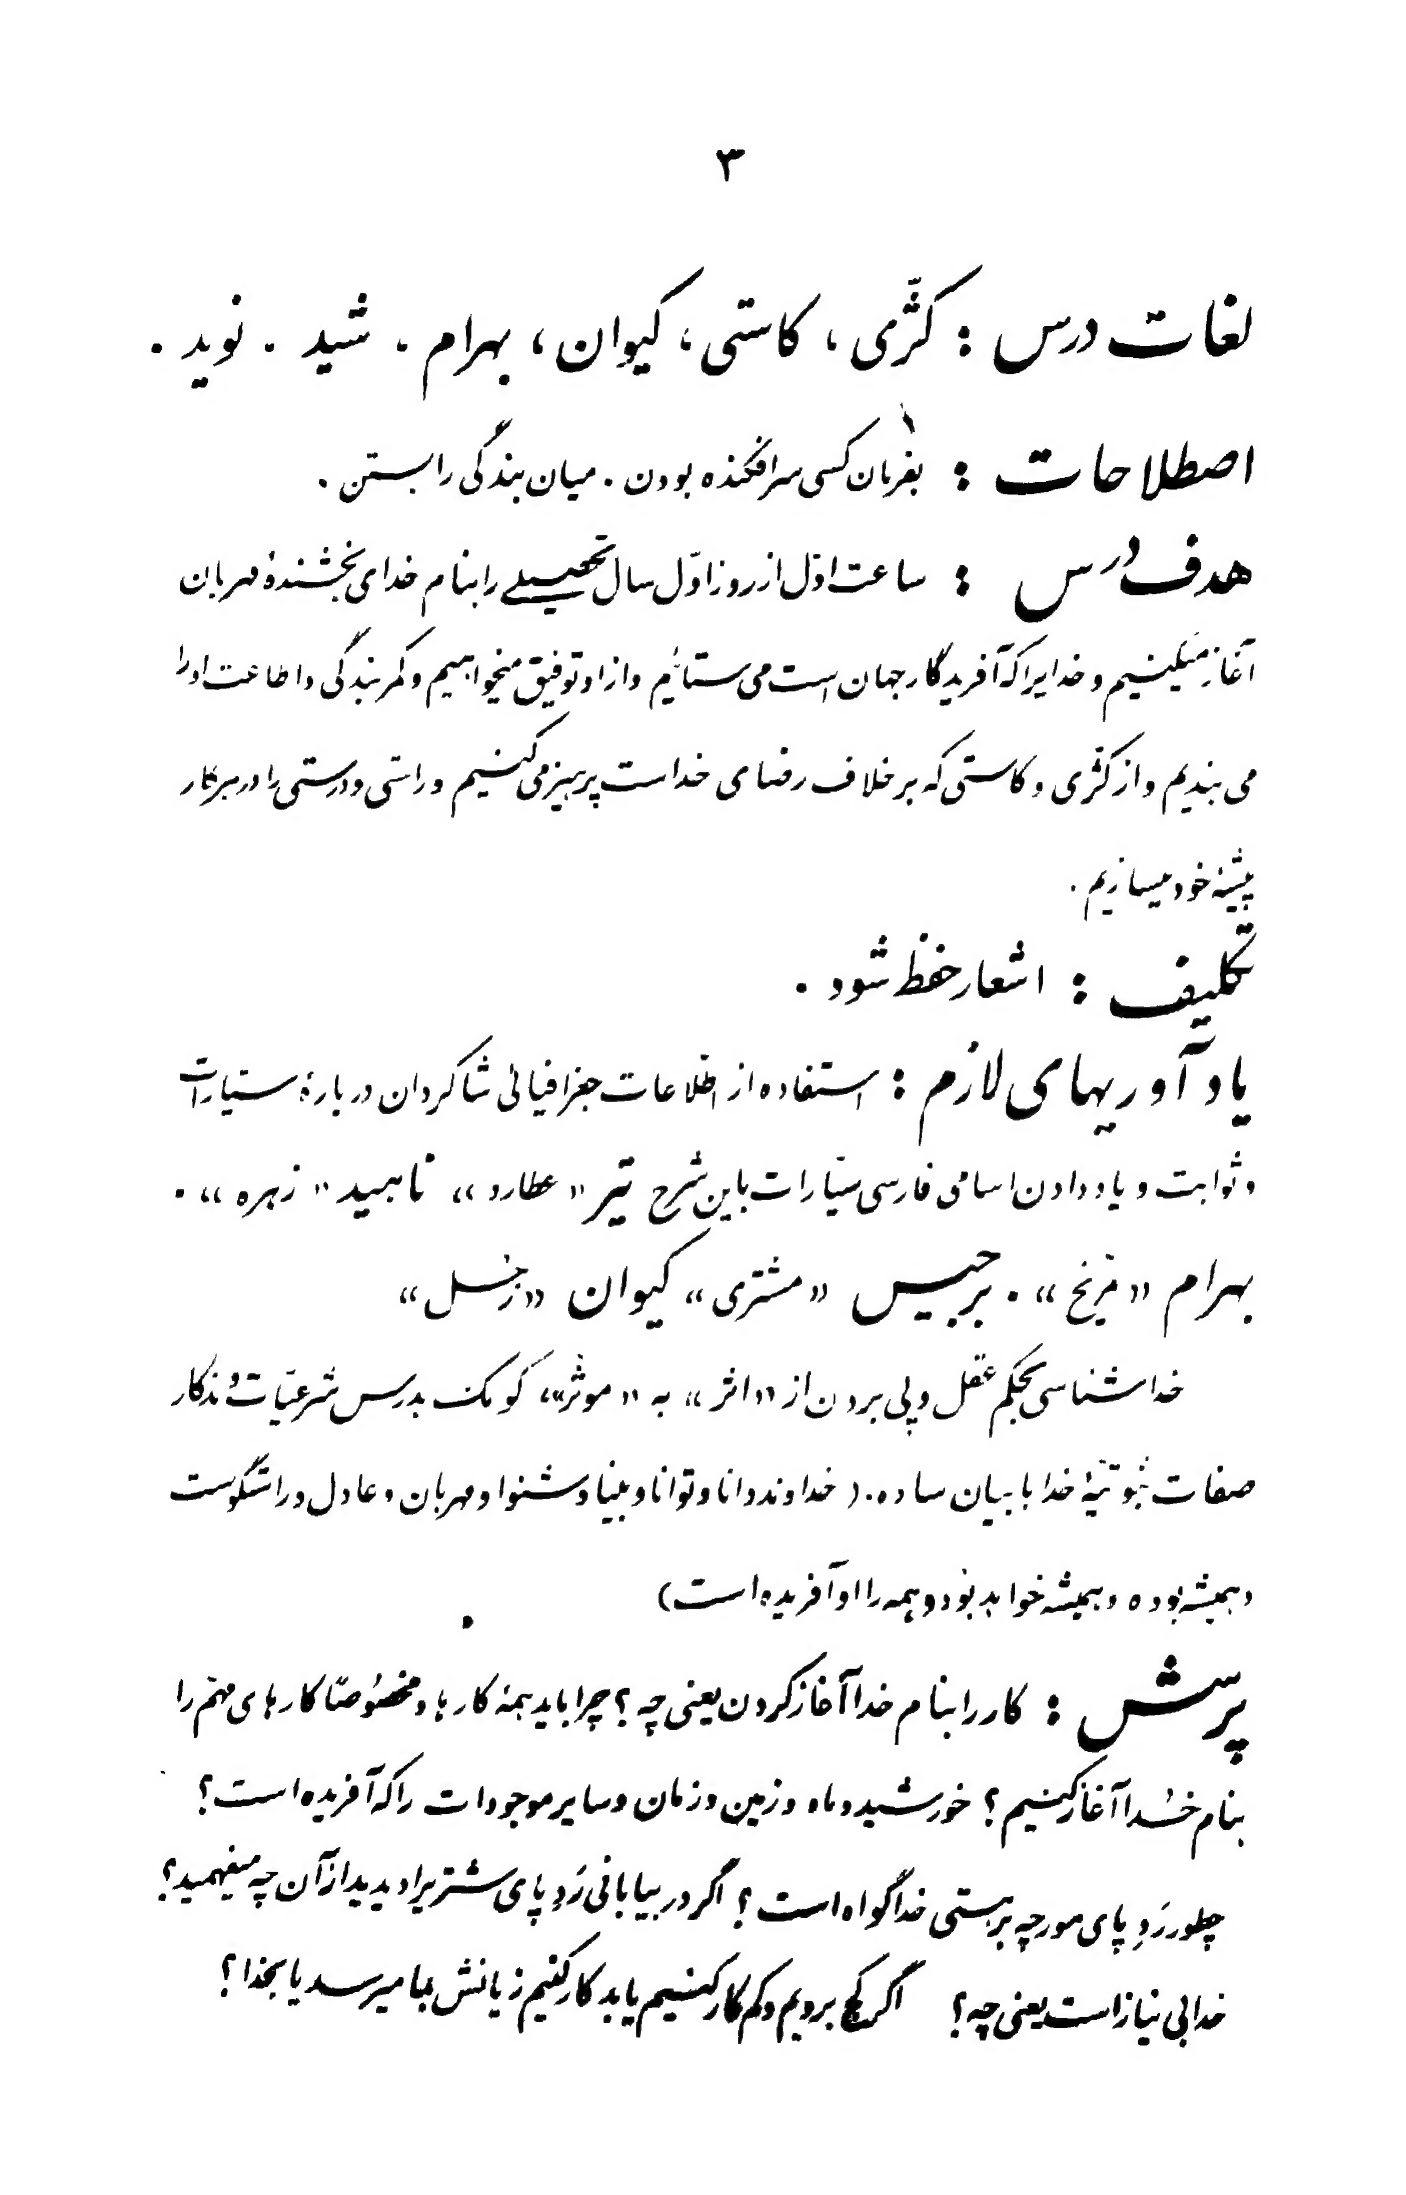 ۳
لغات درس : کژّی ، کاستی ، کیوان ، بهرام . شید . نوید .
اصطلاحات : بفرمان کسی سرافکنده بودن . میان بندگی را بستن .
هدف درس : ساعت اوّل از روز اوّل سال تحصیلی را بنام خدای بخشندهٔ مهربان
آغاز میکنیم و خدایرا که آفریدگار جهان است می ستائیم و از او توفیق میخواهیم و کمر بندگی و اطاعت او را
می بندیم و از کژی و کاستی که بر خلاف رضای خداست پرهیز می کنیم و راستی و درستی را در هر کار
پیشهٔ خود میسازیم .
تکلیف : اشعار حفظ شود .
یادآوریهای لازم : استفاده از اطّلاعات جغرافیائی شاگردان دربارهٔ سیّارات
و ثوابت و یاد دادن اسامی فارسی سیّارات باین شرح تیر « عطارد » ناهید « زهره » .
بهرام « مرّیخ » . برجیس « مشتری » کیوان « زحل »
خداشناسی بحکم عقل و پی بردن از « اثر » به « موثّر » ، کومک بدرس شرعیّات و تذکار
صفات ثبوتیّهٔ خدا با بیان ساده . ( خداوند دانا و توانا و بینا و شنوا و مهربان و عادل و راستگوست
و همیشه بوده و همیشه خواهد بود و همه را او آفریده است )
پرسش : کار را بنام خدا آغاز کردن یعنی چه ؟ چرا باید همهٔ کارها و مخصوصاً کارهای مهمّ را
بنام خدا آغاز کنیم ؟ خورشید و ماه و زمین و زمان و سایر موجودات را که آفریده است ؟
چطور رَدِ پای مورچه بر هستی خدا گواه است ؟ اگر در بیابانی رَدِ پای شتریرا دیدید از آن چه میفهمید ؟
خدا بی نیاز است یعنی چه ؟ اگر کج برویم و کم کار کنیم یا بد کار کنیم زیانش بما میرسد یا بخدا ؟